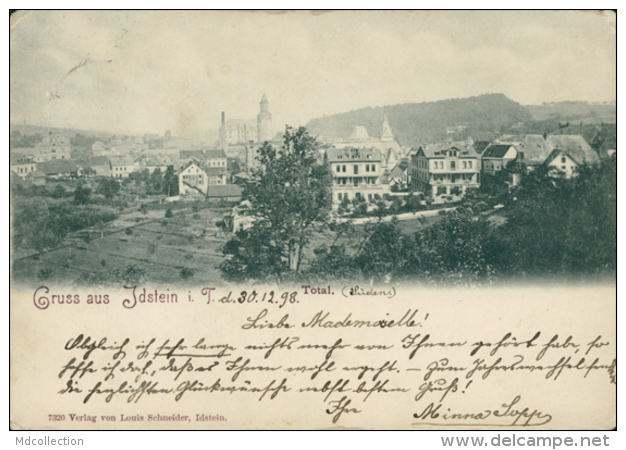 Gruss aus Idstein i. T. d. 30.12.98. Total. (Südens)
Liebe Mademoiselle!
Obgleich ich sehr lange nichts mehr von Ihnen gehört habe, so
hoffe ich doch, daß es Ihnen wohl ergeht. – Zum Jahreswechsel senden
die herzlichsten Glückwünsche nebst besten Gruß!
Ihre Minna
7320 Verlag von Louis Schneider, Idstein.
Mdcollection
delcampe.net